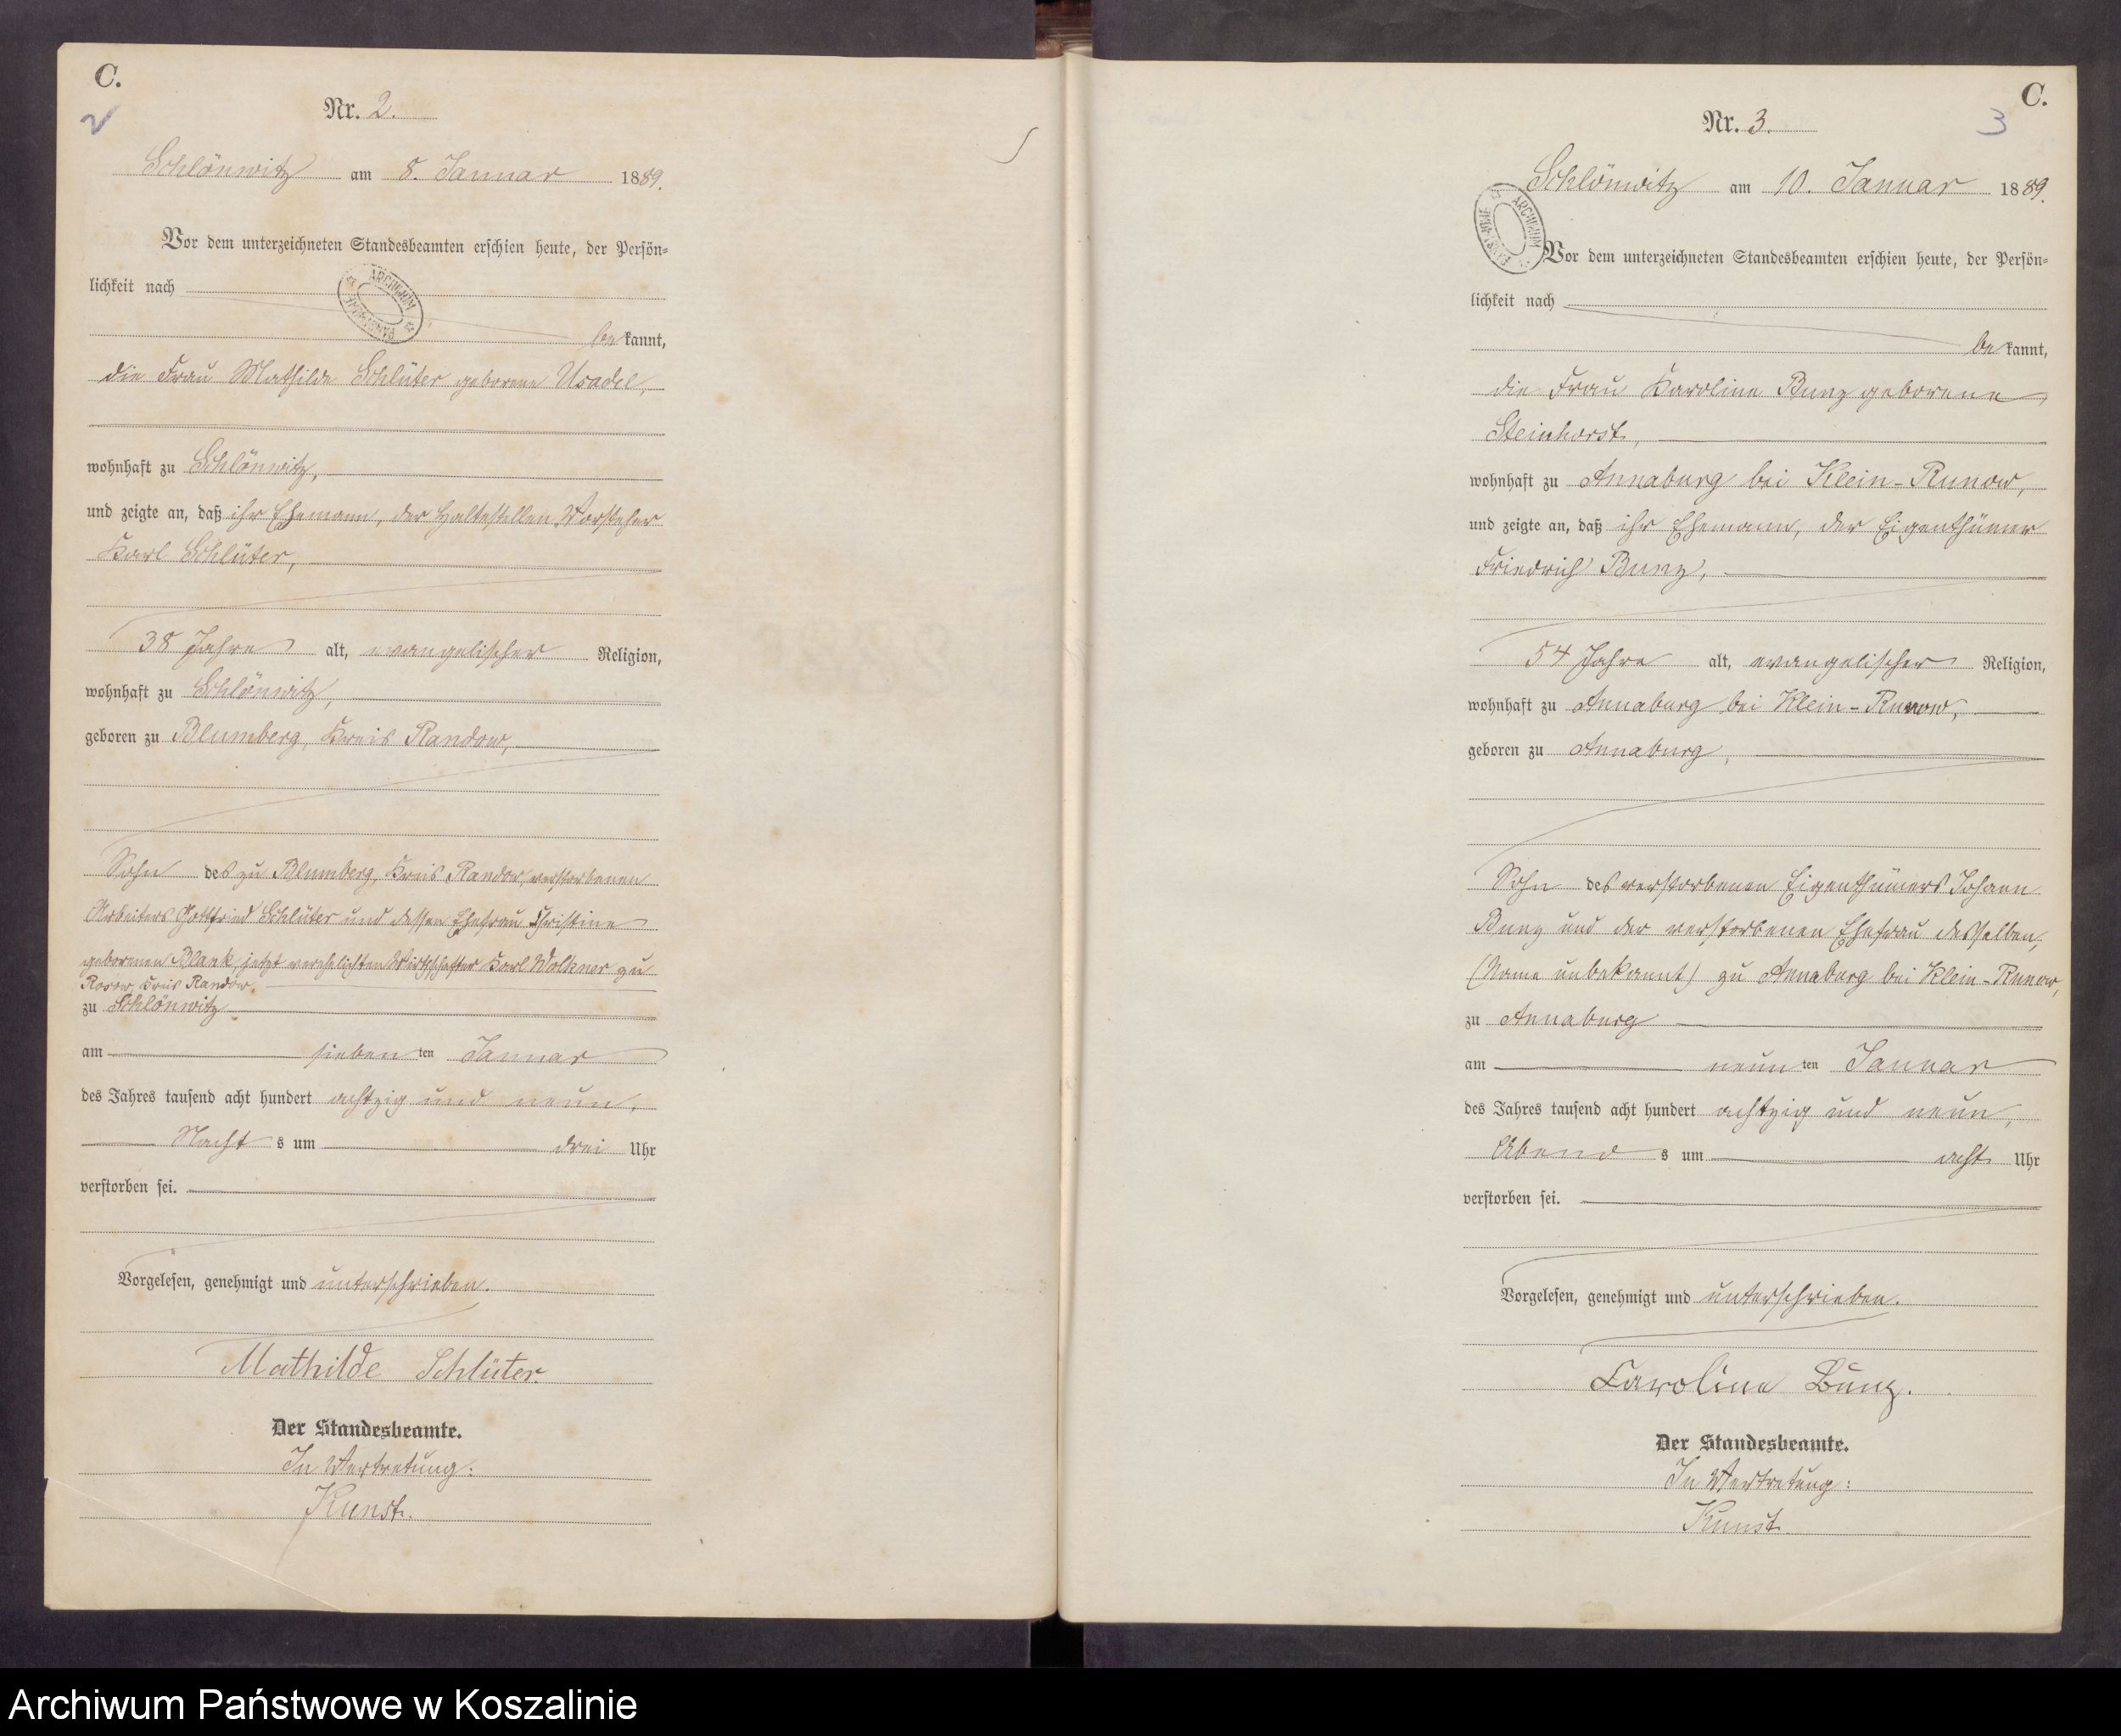 C.
2
Nr. 2.
Schlönwitz am 8. Januar 1889.
Vor dem unterzeichneten Standesbeamten erschien heute, der Persön-
lichkeit nach
be kannt,
die Frau Mathilde Schlüter geborene Usadel,
wohnhaft zu Schlönwitz,
und zeigte an, daß ihr Ehemann, der Haltestellen Vorsteher
Karl Schlüter,
38 Jahre alt, evangelischer Religion,
wohnhaft zu Schlönwitz,
geboren zu Blumberg, Kreis Randow,
Sohn des zu Blumberg, Kreis Randow, verstorbenen
Arbeiters Gottfried Schlüter und dessen Ehefrau Christine
geborenen Blank, jetzt verehelichten Wirthschafter Karl Wolkner zu
Rosow Kreis Randow.
zu Schlönwitz
am sieben ten Januar
des Jahres tausend acht hundert achtzig und neun,
Nacht s um drei Uhr
verstorben sei.
Vorgelesen, genehmigt und unterschrieben.
Mathilde Schlüter.
Der Standesbeamte.
In Vertretung:
Kunst.
C.
3
Nr. 3.
Schlönwitz am 10. Januar 1889.
ARCHIWUM
Vor dem unterzeichneten Standesbeamten erschien heute, der Persön-
lichkeit nach
be kannt,
die Frau Karoline Bunz geborene
Steinhorst,
wohnhaft zu Annaburg bei Klein-Runow,
und zeigte an, daß ihr Ehemann, der Eigenthümer
Friedrich Bunz,
54 Jahre alt, evangelischer Religion,
wohnhaft zu Annaburg bei Klein-Runow,
geboren zu Annaburg,
Sohn des verstorbenen Eigenthümers Johann
Bunz und der verstorbenen Ehefrau desselben,
(Name unbekannt) zu Annaburg bei Klein-Runow,
zu Annaburg
am neun ten Januar
des Jahres tausend acht hundert achtzig und neun,
Abend s um acht Uhr
verstorben sei.
Vorgelesen, genehmigt und unterschrieben.
Caroline Bunz.
Der Standesbeamte.
In Vertretung:
Kunst
Archiwum Państwowe w Koszalinie